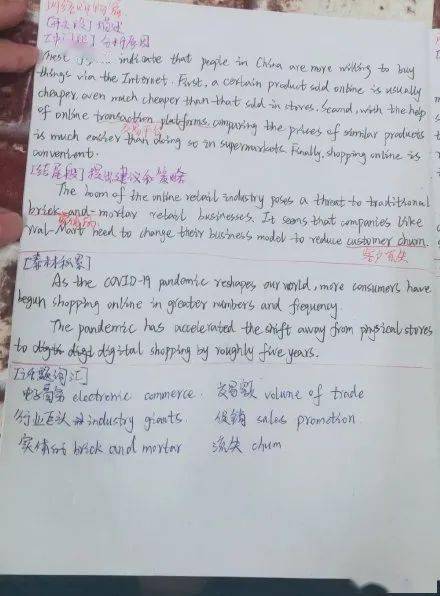 网络购物
[开头段] 描述
[中间段] 分析原因
These indicate that people in China are more willing to buy
things via the Internet. First, a certain product sold online is usually
cheaper, even much cheaper than that sold in stores. Second, with the help
of online transaction platforms, comparing the prices of similar products
交易平台
is much easier than doing so in supermarkets. Finally, shopping online is
convenient.
[结尾段] 提出建议和策略
The boom of the online retail industry poses a threat to traditional
brick-and-mortar retail businesses. It seems that companies like
实体的
Wal-Mart need to change their business model to reduce customer churn.
客户流失
[素材积累]
As the COVID-19 pandemic reshapes our world, more consumers have
begun shopping online in greater numbers and frequency.
The pandemic has accelerated the shift away from physical stores
to digital shopping by roughly five years.
[话题词汇]
电子商务 electronic commerce. 交易额 volume of trade
行业巨头 industry giants. 促销 sales promotion
实体的 brick and mortar 流失 churn